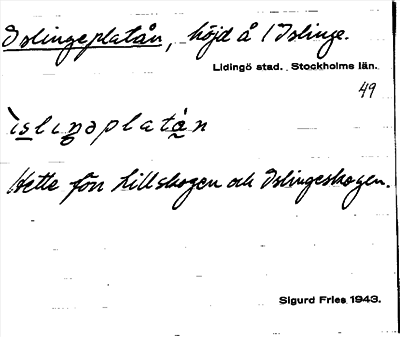 Islingeplatån, höjd å 1 Islinge.
Lidingö stad. Stockholms län.
49
ìslıŋəplatá̰n
Hette förr Lillskogen och Islingeskogen.
Sigurd Fries 1943.